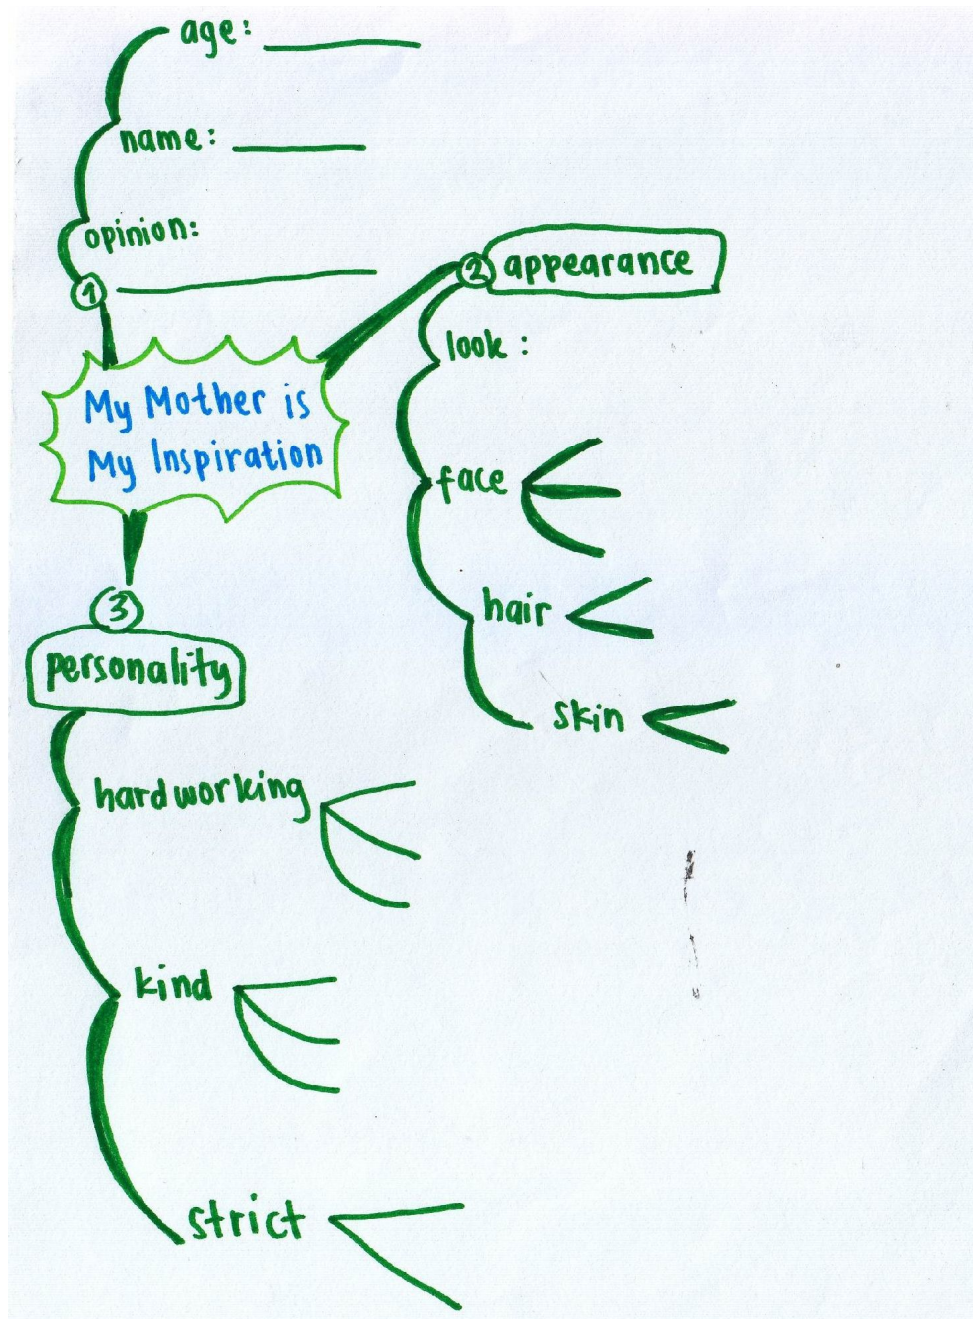 age:
name:
opinion:
1
My Mother is
My Inspiration
2 appearance
look :
face
hair
skin
3
personality
hardworking
kind
strict